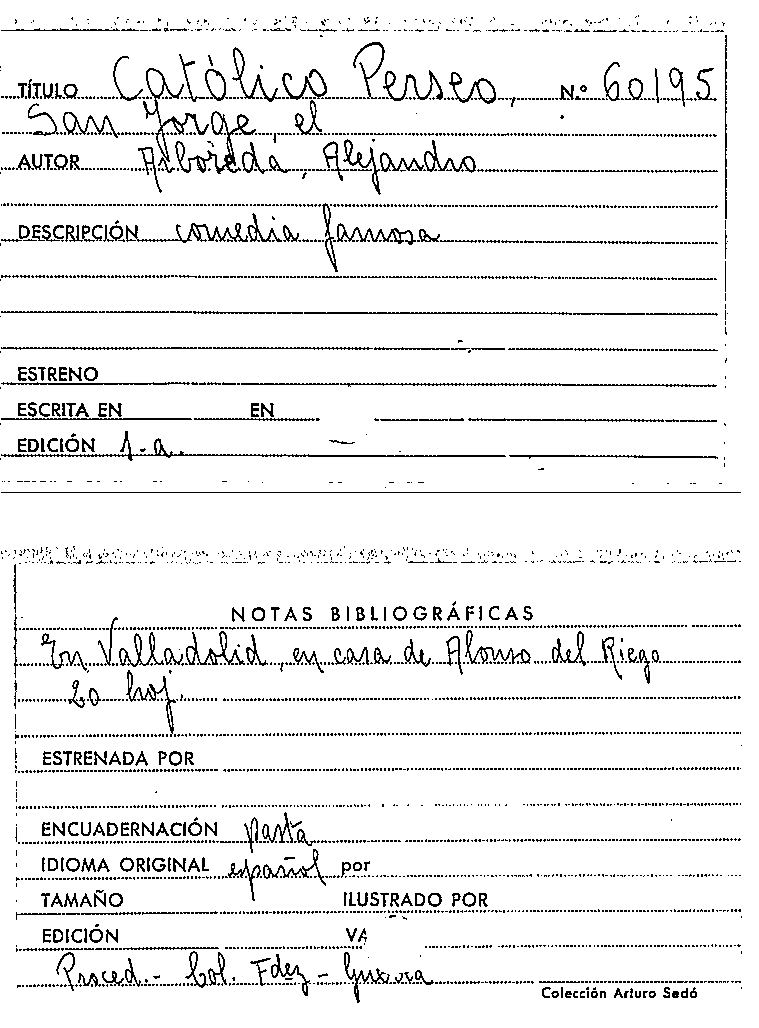 TÍTULO Católico Perseo, N.º 60195
San Jorge, el
AUTOR Arboreda, Alejandro
DESCRIPCIÓN comedia famosa
ESTRENO
ESCRITA EN EN
EDICIÓN s.a.
NOTAS BIBLIOGRÁFICAS
En Valladolid, en casa de Alonso del Riego
20 hoj.
ESTRENADA POR
ENCUADERNACIÓN pasta
IDIOMA ORIGINAL español por
TAMAÑO ILUSTRADO POR
EDICIÓN VA
Proced.- Col. Fdez - Guerra
Colección Arturo Sedó